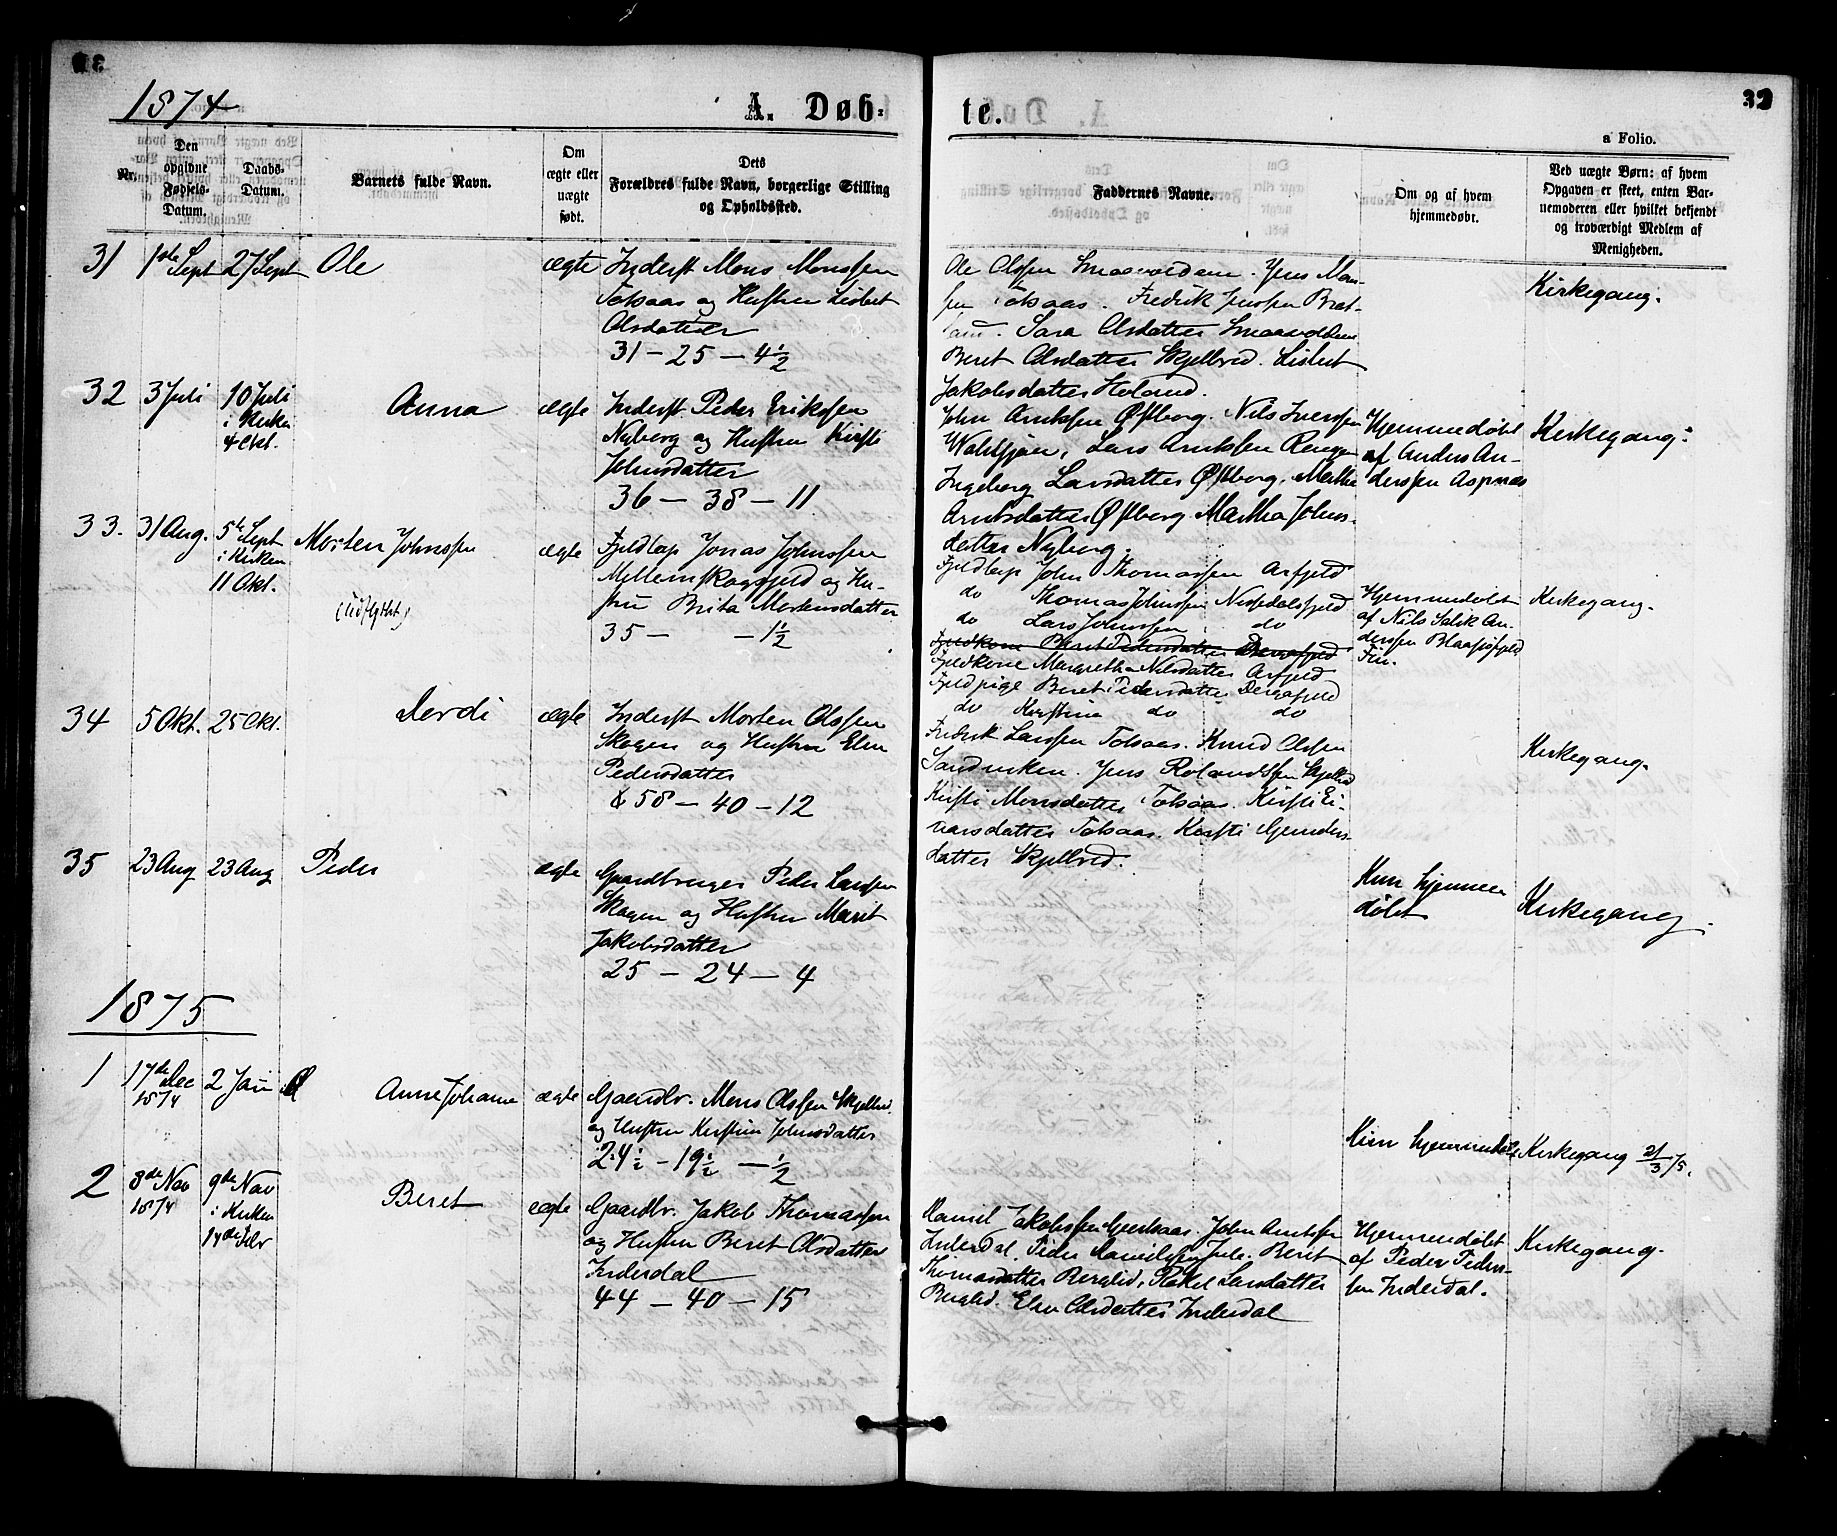 1874
A. Døb-
te.
32
a Folio.
Nr.
Den opgivne Fødsels-Datum.
Daabs-Datum.
Barnets fulde Navn.
Om ægte eller uægte født.
Dets Forældres fulde Navn, borgerlige Stilling og Opholdssted.
Faddernes Navne.
Om og af hvem hjemmedøbt.
Ved uægte Børn: af hvem Opgaven er skeet, enten Barnemoderen eller hvilket bekjendt og troværdigt Medlem af Menigheden.
31
1ste Sept
27 Sept
Ole
ægte
Inderst Mons Monssen
Totsaas og Hustru Lisbet
Olsdatter
31 – 25 – 4½
Ole Olssen Smaavolden. Jens Mon-
sen Totsaas. Fredrik Jenssen Brat-
land. Sara Olsdatter Smaavolden
Beret Olsdatter Skjelbred. Lisbet
Jakobsdatter Holand.
Kirkegang.
32
3 Juli
10 Juli
i Kirken
4 Okt.
Anna
ægte
Inderst Peder Eriksen
Nyborg og Hustru Kirsti
Johnsdatter
36 – 38 – 11
John Arntssen Østborg. Nils Iverssen
Lars Arntssen
Ingeborg Larsdatter Østborg. Marthe
Arntsdatter Østborg. Martha Johns-
datter Nyborg.
Hjemmedøbt
af Anders An-
derssen Aspnæs
Kirkegang.
33.
31 Aug.
5te Sept
i Kirken
11 Okt.
Morten Johnssen
ægte
Fjeldlap Jonas Johnssen
Mellemskogsfjeld og Hu-
stru Brita Mortensdatter
35 – – 1½
Fjeldlap John Thomassen Arfjeld
do Thomas Johnssen
do Lars Johnssen do
Fjeldkone Beret Pedersdatter
Fjeldkone Margrethe Nilsdatter Arfjeld
Fjeldpige Beret Pedersdatter Dergafjeld
do Kristina do do
Hjemmedøbt
af Nils An-
derssen Blaasjøfjeld
Fin.
Kirkegang.
34
5 Okt.
25 Okt.
Serdi
ægte
Inderst Morten Olssen
Skogen og Hustru Elen
Pedersdatter
58 – 40 – 12
Fredrik Larssen Totsaas. Knud Olssen
Sandviken. Jens Rolandssen Skjelbred
Kirsti Monsdatter Totsaas. Kirsti Ei-
narsdatter Totsaas. Kirsti
datter Skjelbred.
Kirkegang.
35
23 Aug
23 Aug
Peder
ægte
Gaardbruger Peder Larssen
Skogen og Hustru Marit
Jakobsdatter
25 – 24 – 4
Kun hjemme
døbt
Kirkegang.
1875
1
17de Dec
1874
2 Jan
Anne Johanne
ægte
Gaardbr. Mons Olssen Skjelbred
og Hustru Kirstine Johnsdatter
24½ – 19½ – ½
Kun hjemmedøbt
Kirkegang 21/3 75.
2
8de Nov
1874
9de Nov
i Kirken
14de Febr
Beret
ægte
Gaardbr. Jakob Thomassen
og Hustru Beret Olsdatter
Inderdal
44 – 40 – 15
Daniel Jakobssen John Arntssen
Inderdal. Peder Danielssen Jule. Beret
Thomasdatter Berglid, Rakel Larsdatter
Berglid. Elen Olsdatter Inderdal
Hjemmedøbt
af Peder Peders-
sen Inderdal.
Kirkegang.